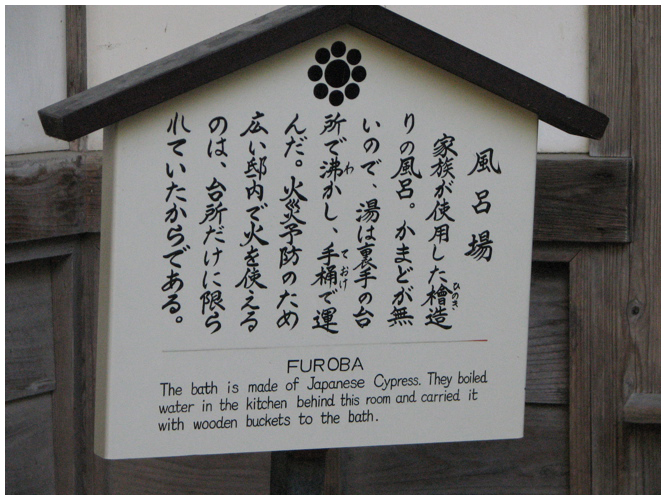 風呂場
家族が使用した檜造
ひのき
りの風呂。かまどが無
いので、湯は裏手の台
所で沸かし、手桶で運
わ
ておけ
んだ。火災予防のため
広い邸内で火を使える
のは、台所だけに限ら
れていたからである。
FUROBA
The bath is made of Japanese Cypress. They boiled
water in the kitchen behind this room and carried it
with wooden buckets to the bath.